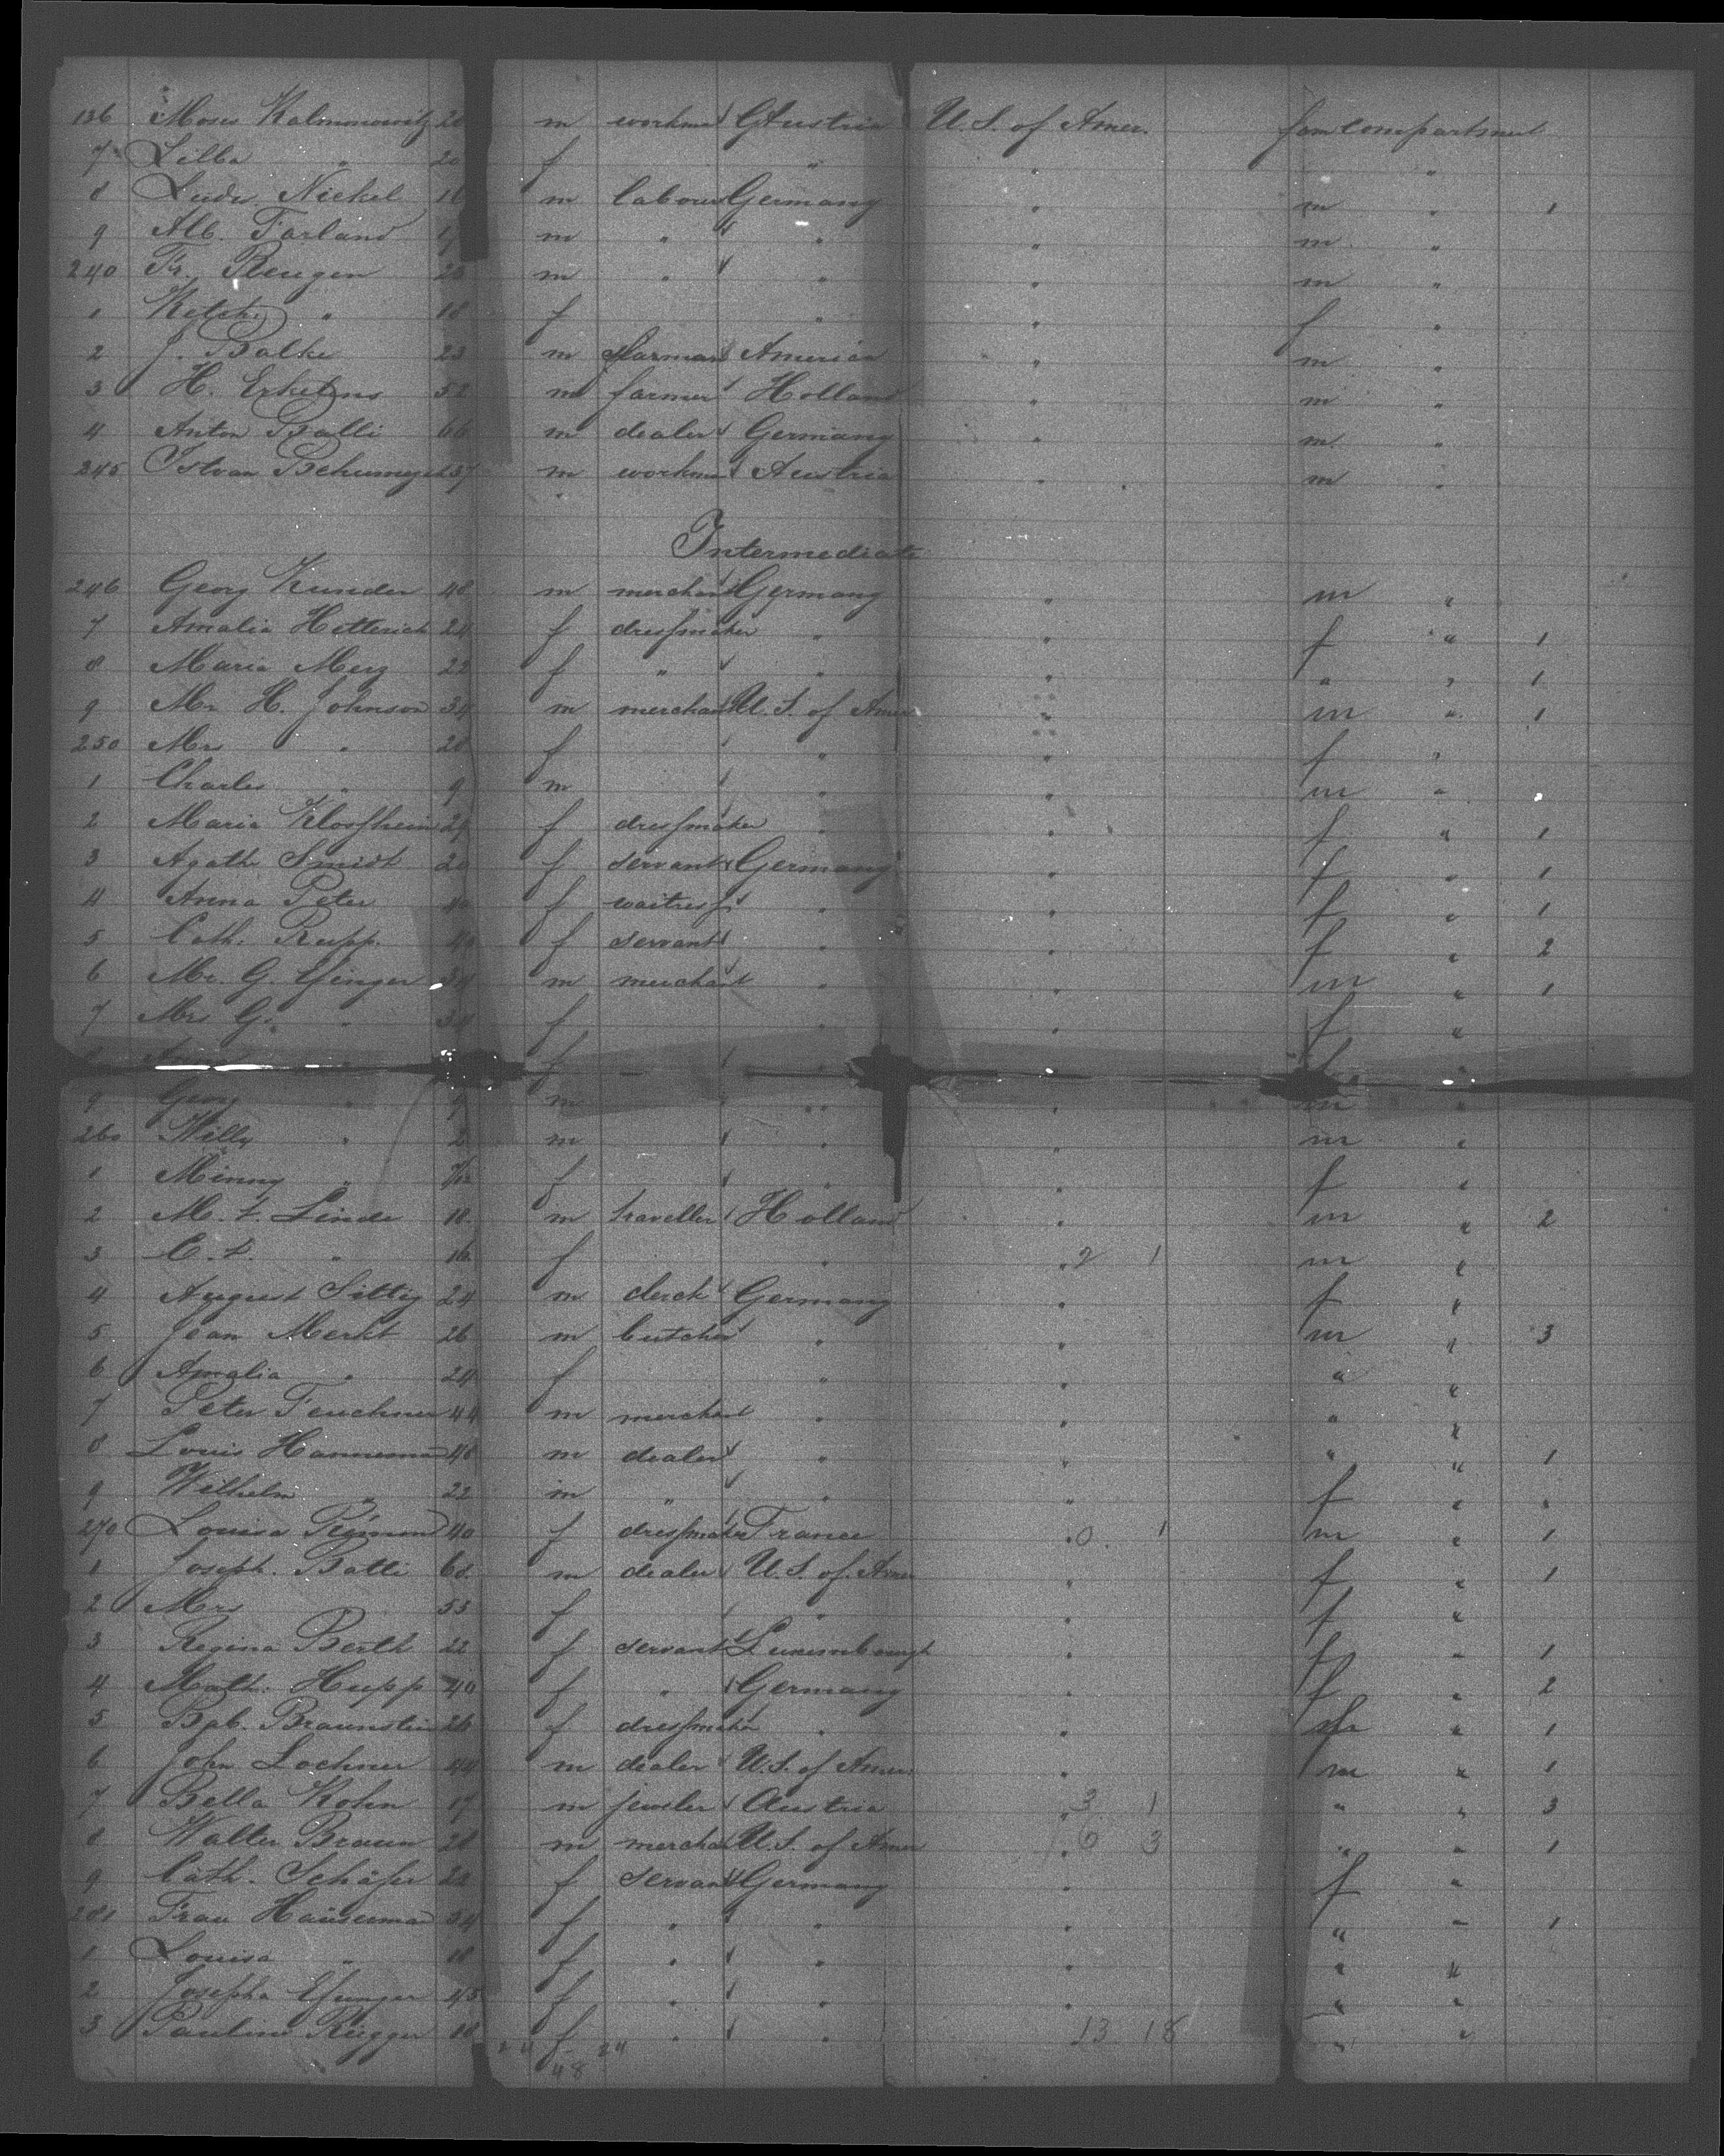 136 Moses Kalmonowitz 20 m workman Austria U.S. of Amer. fam compartment
7 Lilba " 20 f " " "
8 Ludw. Nickel m labour Germany " m " 1
9 Alb. Farland m " " " m "
240 Fr. Reugen m " " " m "
1 " 18 f " " f "
2 J. Balke 23 m America " m "
3 H. Erkelens 52 m farmer Holland " m "
4 Anton Balli 66 m dealer Germany " m "
245 Istvan 37 m workman Austria " m "
Intermediate
246 Georg Kunder 48 m merchant Germany " m "
7 Amalia Hetterich 24 f dressmaker " " f " 1
8 Maria Merz 22 f " " " " " 1
9 Mr H. Johnson 34 m merchant U.S. of Amer " m " 1
250 Mrs " 28 f " " f "
1 Charles " 9 m " " m "
2 Maria 29 f dressmaker " " f " 1
3 Agath Smidt 20 f servant Germany " f " 1
4 Anna Peter 40 f waitress " " f " 1
5 Cath. Rupp. 40 f servant " " f " 2
6 Mr. G. Efinger 34 m merchant " " m " 1
7 Mrs G. " 34 f " " f "
f " "
9 Georg " 9 m " " m "
260 Willy " 2 m " " m "
1 Minny " f " " f "
2 M. t. Linde 18 m traveller Holland " m " 2
3 C. t. " 16 f " " 2 1 m "
4 August Sittig 24 m clerck Germany " f "
5 Jean Merkt 26 m butcher " " m " 3
6 Amalia " 24 f " " " "
7 Peter Feuchner 44 m merchant " " " "
8 Louis Hanneman 48 m dealer " " " " 1
9 Wilhelm " 22 m " " " f " "
270 Louisa 40 f dressmaker France " 0 1 m " 1
1 Joseph. Batti 60 m dealer U.S. of Amer " f " 1
2 Mrs 53 f " " f "
3 Regina Berth 22 f servant Luxembourgh " f " 1
4 Math. Hupp 40 f " Germany " f " 2
5 Bab. Braunstein 26 f dressmaker " " " 1
6 John Lochner 44 m dealer U.S. of Amer. " m " 1
7 Bella Kohn 17 m jeweler Austria " 3 1 " " 3
8 Walter Braun 28 m merchant U.S. of Amer " 6 3 " " 1
9 Cath. Schäfer 22 f servant Germany " f "
Frau Hauserman 54 f " " " " " 1
1 Louisa " 18 f " " " " "
2 Josepha Efinger 45 f " " " " "
3 Pauline Rügger 18 f " " 13 18 " "
24 24
48